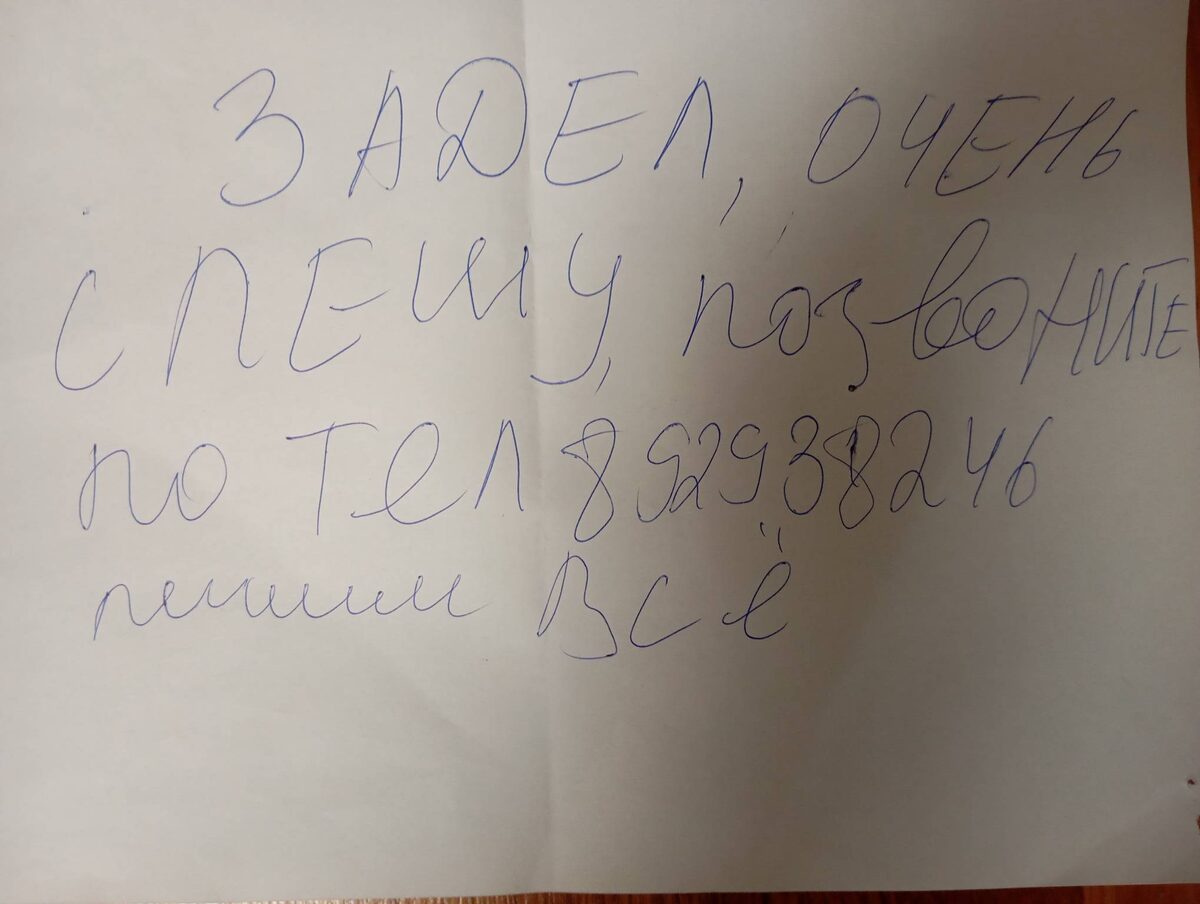 ЗАДЕЛ, ОЧЕНЬ
СПЕШУ, позвоНИТЕ
по Тел 892938246
решим ВСё